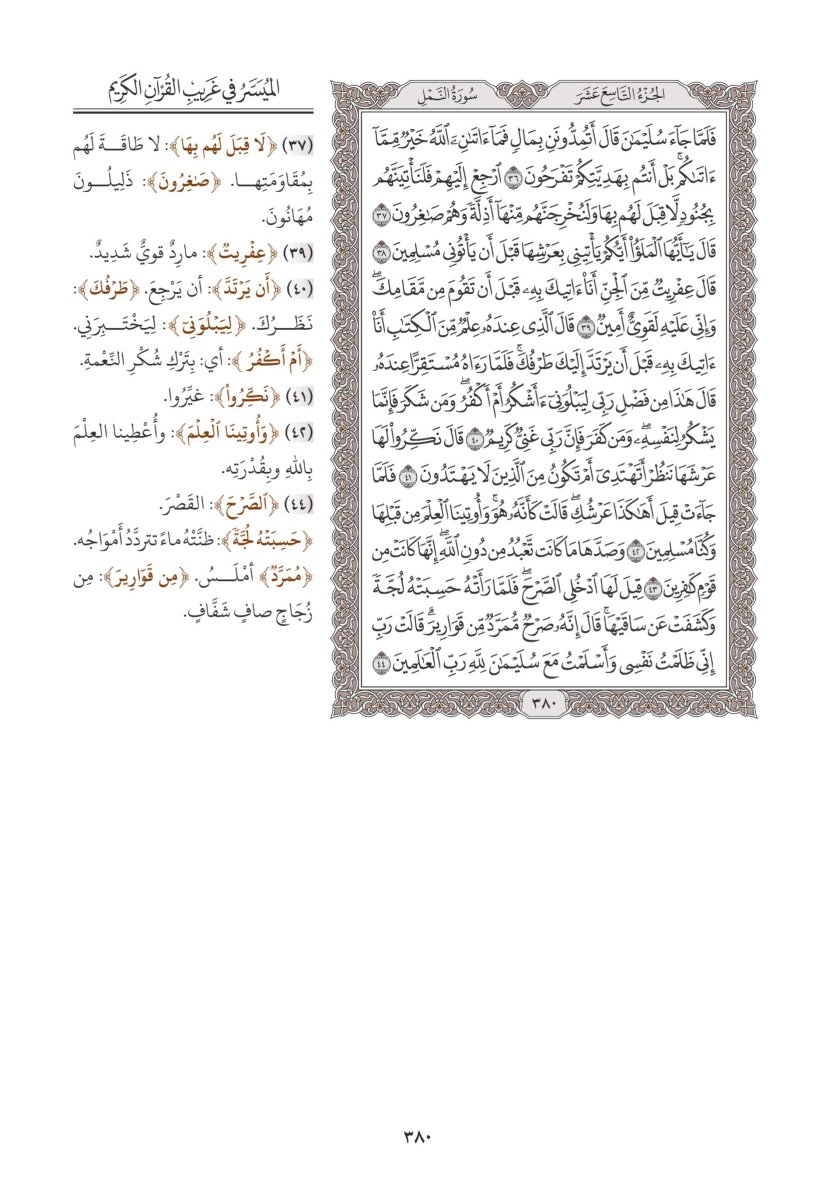 الجُزْءُ التَّاسِعَ عَشَرَ
سُورَةُ النَّمْلِ
فَلَمَّا جَآءَ سُلَيْمَٰنَ قَالَ أَتُمِدُّونَنِ بِمَالٍ فَمَآ ءَاتَىٰنِۦَ ٱللَّهُ خَيْرٌ مِّمَّآ
ءَاتَىٰكُمۚ بَلْ أَنتُم بِهَدِيَّتِكُمْ تَفْرَحُونَ ٣٦ ٱرْجِعْ إِلَيْهِمْ فَلَنَأْتِيَنَّهُم
بِجُنُودٍ لَّا قِبَلَ لَهُم بِهَا وَلَنُخْرِجَنَّهُم مِّنْهَآ أَذِلَّةً وَهُمْ صَٰغِرُونَ ٣٧
قَالَ يَٰٓأَيُّهَا ٱلْمَلَؤُا۟ أَيُّكُمْ يَأْتِينِى بِعَرْشِهَا قَبْلَ أَن يَأْتُونِى مُسْلِمِينَ ٣٨
قَالَ عِفْرِيتٌ مِّنَ ٱلْجِنِّ أَنَا۠ ءَاتِيكَ بِهِۦ قَبْلَ أَن تَقُومَ مِن مَّقَامِكَۖ
وَإِنِّى عَلَيْهِ لَقَوِىٌّ أَمِينٌ ٣٩ قَالَ ٱلَّذِى عِندَهُۥ عِلْمٌ مِّنَ ٱلْكِتَٰبِ أَنَا۠
ءَاتِيكَ بِهِۦ قَبْلَ أَن يَرْتَدَّ إِلَيْكَ طَرْفُكَۚ فَلَمَّا رَءَاهُ مُسْتَقِرًّا عِندَهُۥ
قَالَ هَٰذَا مِن فَضْلِ رَبِّى لِيَبْلُوَنِىٓ ءَأَشْكُرُ أَمْ أَكْفُرُۖ وَمَن شَكَرَ فَإِنَّمَا
يَشْكُرُ لِنَفْسِهِۦۖ وَمَن كَفَرَ فَإِنَّ رَبِّى غَنِىٌّ كَرِيمٌ ٤٠ قَالَ نَكِّرُوا۟ لَهَا
عَرْشَهَا نَنظُرْ أَتَهْتَدِىٓ أَمْ تَكُونُ مِنَ ٱلَّذِينَ لَا يَهْتَدُونَ ٤١ فَلَمَّا
جَآءَتْ قِيلَ أَهَٰكَذَا عَرْشُكِۖ قَالَتْ كَأَنَّهُۥ هُوَۚ وَأُوتِينَا ٱلْعِلْمَ مِن قَبْلِهَا
وَكُنَّا مُسْلِمِينَ ٤٢ وَصَدَّهَا مَا كَانَت تَّعْبُدُ مِن دُونِ ٱللَّهِۖ إِنَّهَا كَانَتْ مِن
قَوْمٍ كَٰفِرِينَ ٤٣ قِيلَ لَهَا ٱدْخُلِى ٱلصَّرْحَۖ فَلَمَّا رَأَتْهُ حَسِبَتْهُ لُجَّةً
وَكَشَفَتْ عَن سَاقَيْهَاۚ قَالَ إِنَّهُۥ صَرْحٌ مُّمَرَّدٌ مِّن قَوَارِيرَۗ قَالَتْ رَبِّ
إِنِّى ظَلَمْتُ نَفْسِى وَأَسْلَمْتُ مَعَ سُلَيْمَٰنَ لِلَّهِ رَبِّ ٱلْعَٰلَمِينَ ٤٤
٣٨٠
المُيَسَّرُ في غَرِيبِ القُرْآنِ الكَرِيم
(٣٧) ﴿لَا قِبَلَ لَهُم بِهَا﴾: لا طَاقَةَ لَهُم
بِمُقَاوَمَتِها. ﴿صَٰغِرُونَ﴾: ذَلِيلُونَ
مُهَانُونَ.
(٣٩) ﴿عِفْرِيتٌ﴾: مارِدٌ قويٌّ شَدِيدٌ.
(٤٠) ﴿أَن يَرْتَدَّ﴾: أن يَرْجِعَ. ﴿طَرْفُكَ﴾:
نَظَرُكَ. ﴿لِيَبْلُوَنِىٓ﴾: لِيَخْتَبِرَنِي.
﴿أَمْ أَكْفُرُ﴾: أي: بِتَرْكِ شُكْرِ النِّعْمةِ.
(٤١) ﴿نَكِّرُوا۟﴾: غيِّرُوا.
(٤٢) ﴿وَأُوتِينَا ٱلْعِلْمَ﴾: وأُعْطِينا العِلْمَ
بِاللهِ وبِقُدْرَتِه.
(٤٤) ﴿ٱلصَّرْحَ﴾: القَصْرَ.
﴿حَسِبَتْهُ لُجَّةً﴾: ظنَّتْهُ ماءً تتردَّدُ أَمْوَاجُه.
﴿مُّمَرَّدٌ﴾ أمْلَسُ. ﴿مِن قَوَارِيرَ﴾: مِن
زُجَاجٍ صافٍ شَفَّافٍ.
٣٨٠